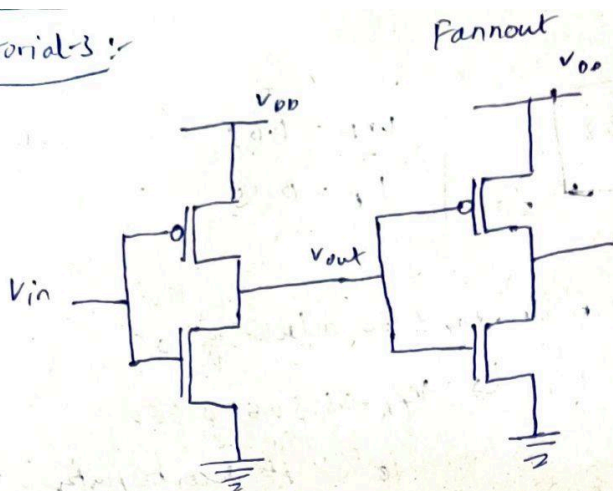 orial-3 :-
Fannout
VDD
VDD
Vin
Vout